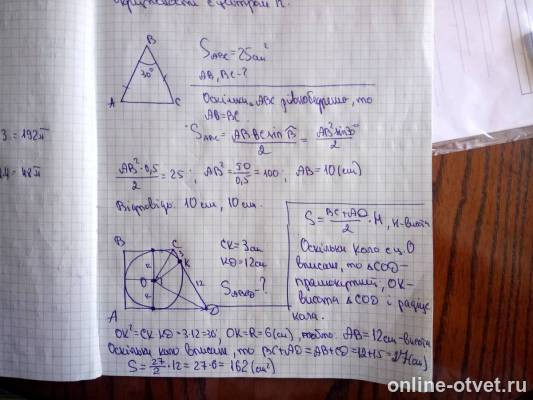 з центром
B
30°
A
C
S_ABC = 25 см²
AB, BC - ?
Оскільки ABC рівнобедрений, то
AB = BC
S_ABC = AB·BC·sin B / 2 = AB² sin 30° / 2
3. = 192π
14 = 48π
AB²·0,5 / 2 = 25; AB² = 50 / 0,5 = 100; AB = 10 (см)
Відповідь: 10 см, 10 см.
B
C
3
K
R
O
12
R
A
D
CK = 3см
KD = 12см
S_ABCD - ?
S = BC + AD / 2 · H, H - висота
Оскільки коло є ц. О
вписане, то △COD -
прямокутний, OK -
висота △COD і радіус
кола.
OK² = CK·KD = 3·12 = 36; OK = R = 6 (см), AB = 12 см - висота
Оскільки коло вписане, то BC + AD = AB + CD = 12 + 15 = 27 (см)
S = 27/2 · 12 = 27·6 = 162 (см²)
online-otvet.ru